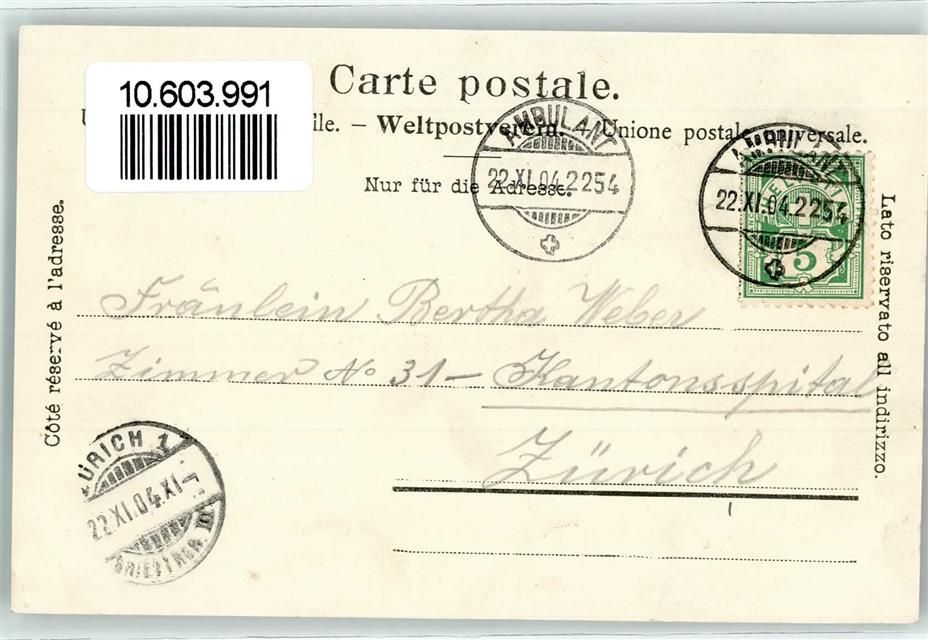 10.603.991
Carte postale.
lle. – Weltpostverein. – Unione postale universale.
Nur für die Adresse.
AMBULANT
22.XI.04.2254
AMBULANT
22.XI.04.2254
HELVETIA
5
Côté réservé à l'adresse.
Lato riservato all indirizzo.
Fräulein Bertha Weber
Zimmer No 31 – Kantonsspital
Zürich
ZÜRICH 1
22.XI.04.XI
BRIEFTRÄG. III